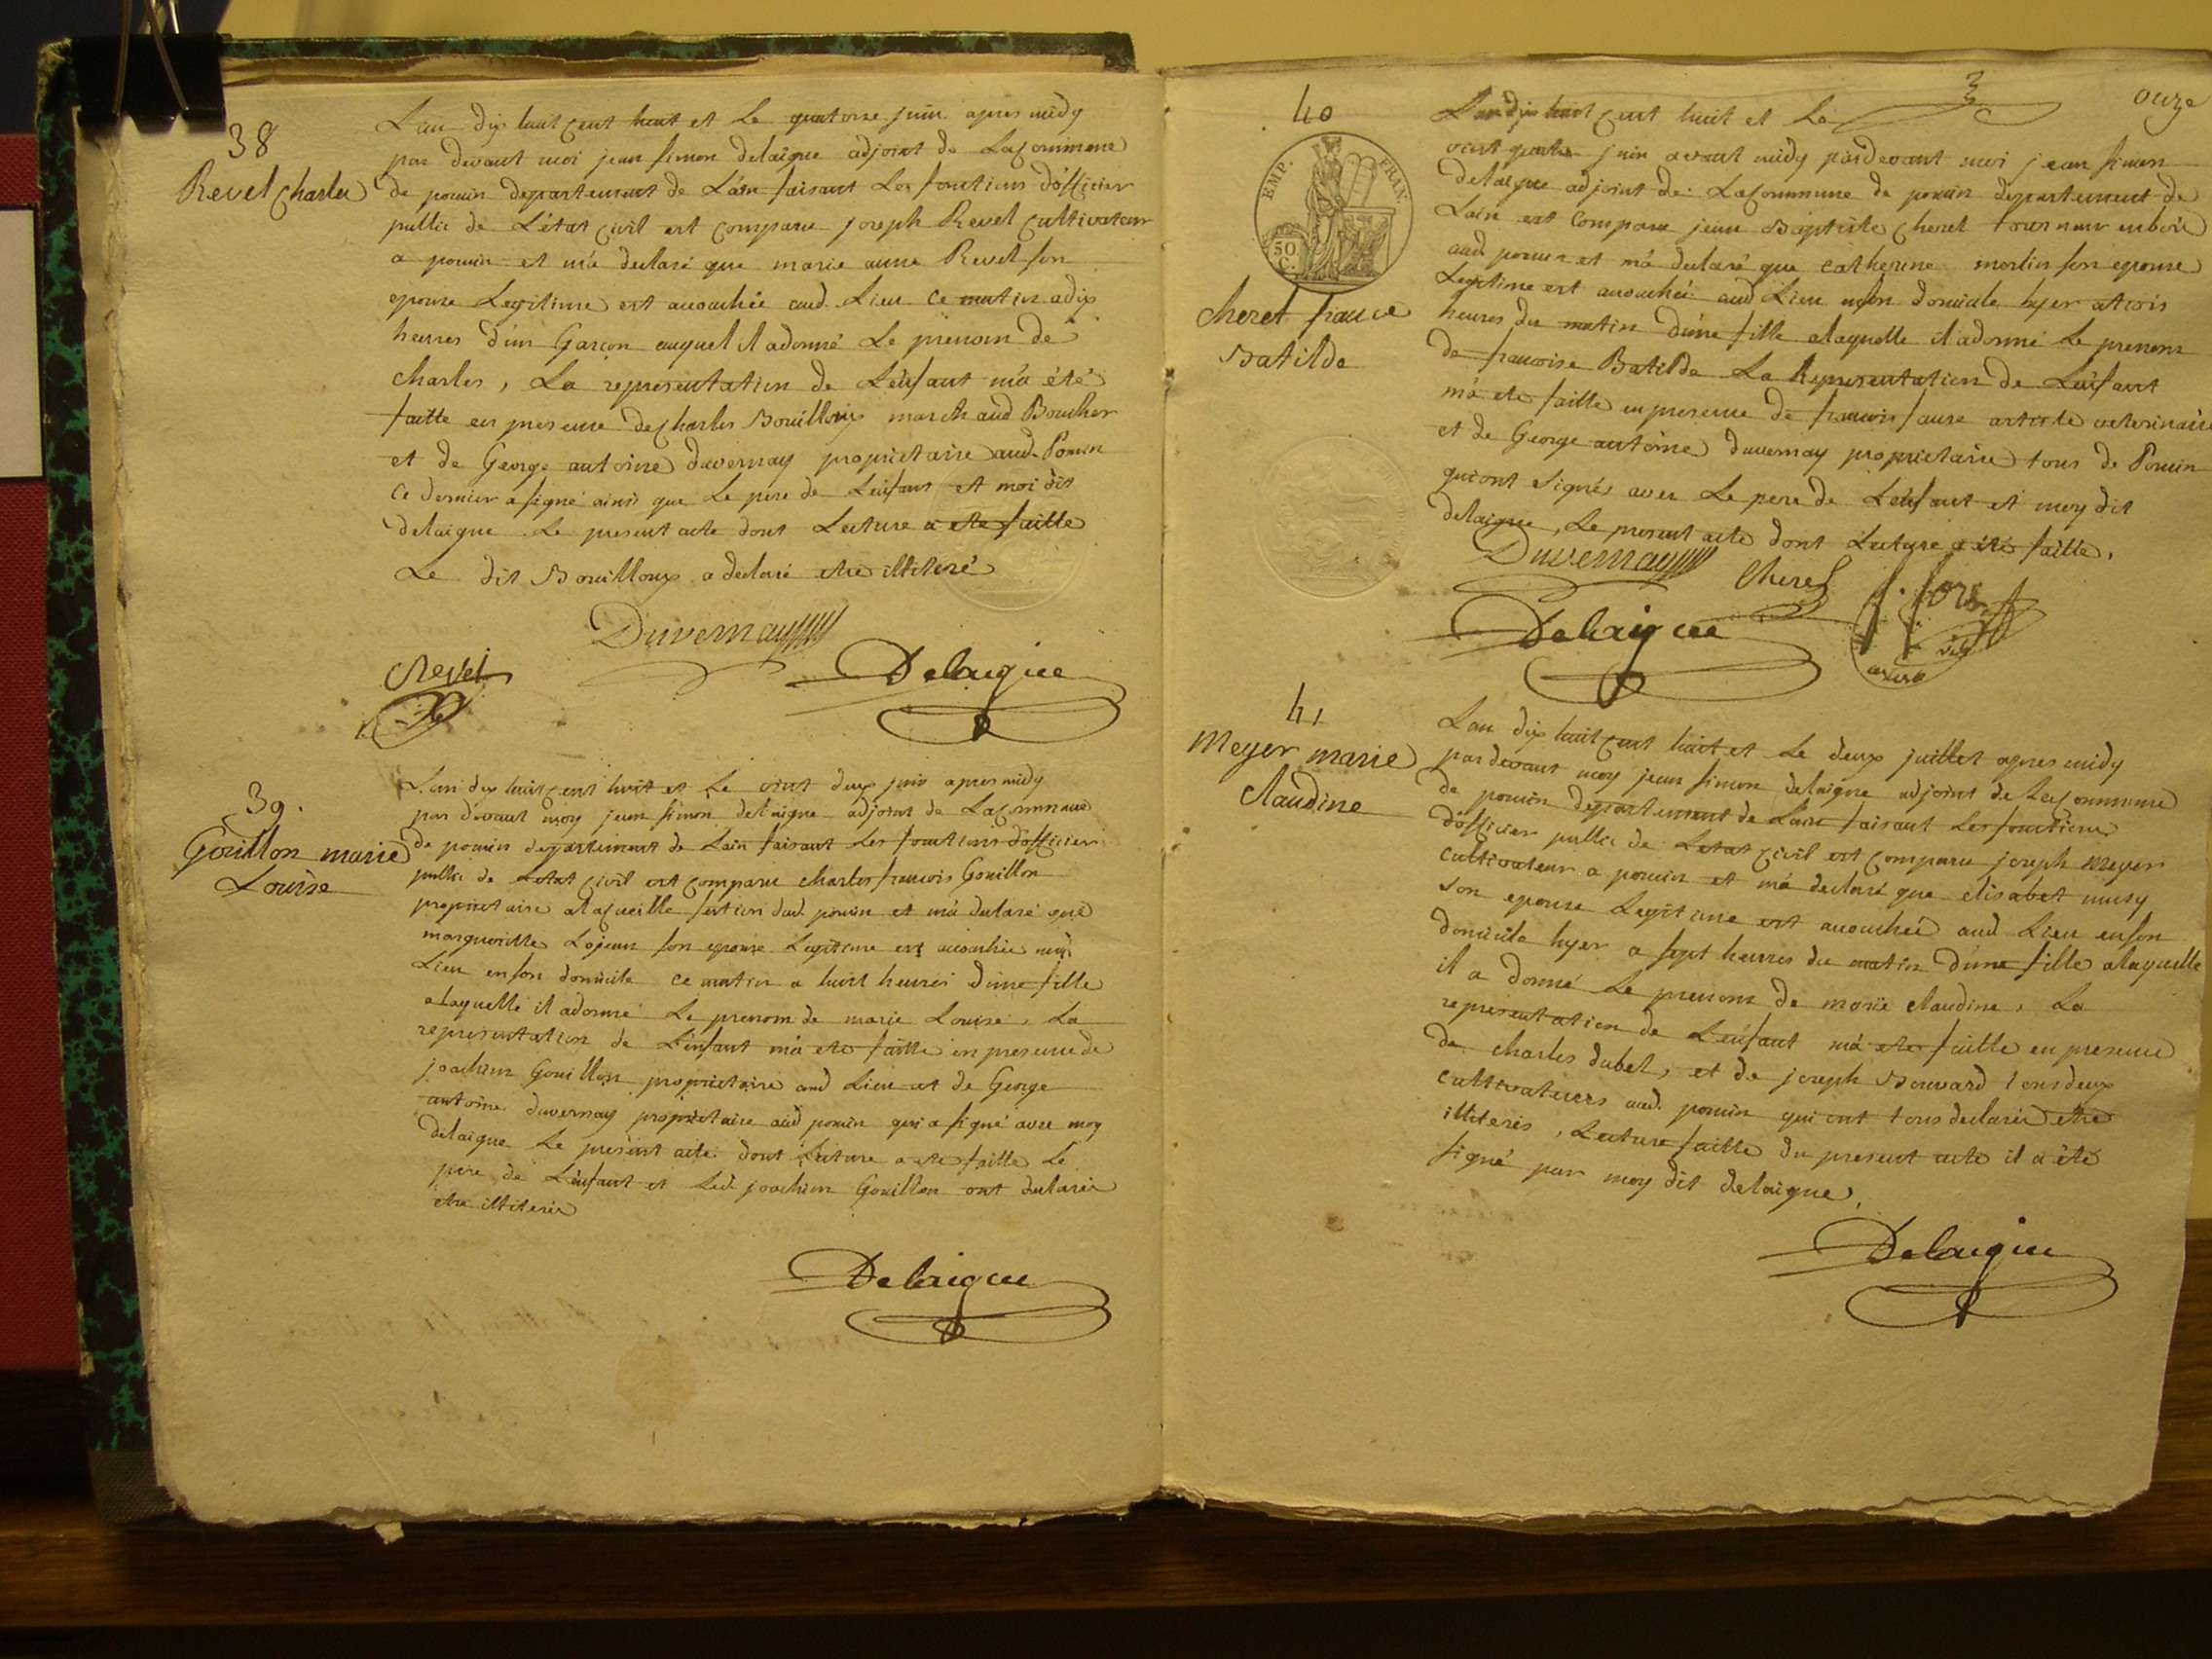 38
Revel Charles
L'an dix huit cent huit et le quatorze juin apres midy
par devant moi jean simon delaigue adjoint de La Commune
de poncin departement de L'ain faisant Les fonctions d'officier
public de L'état Civil est Comparu joseph Revel Cultivateur
a poncin et m'a declaré que marie anne Revel son
epouse Legitime est accouchée aud. Lieu ce matin a dix
heures d'un Garçon auquel il a donné Le prenom de
Charles, La representation de L'enfant m'a été
faitte en presence de Charles Bouilloux marchand Boucher
et de George antoine duvernay proprietaire aud. Poncin
Ce dernier a signé ainsi que Le pere de L'enfant et moi dit
delaigue Le present acte dont Lecture a ete faitte
Le dit Bouilloux a declaré etre illiteré
Duvernay
Revel
Delaigue
39.
Goüillon marie
Louise
L'an dix huit cent huit et Le vint deux juin apres midy
par devant moy jean simon delaigue adjoint de La Commune
de poncin departement de Lain faisant Les fonctions d'officier
public de Letat Civil est Comparu charles francois Gouillon
proprietaire a La Cueille section dud. poncin et m'a declaré que
margueritte Lojean son epouse Legitime est accouchée aud.
Lieu en son domicile ce matin a huit heures d'une fille
a laquelle il a donné Le prenom de marie Louise, La
representation de L'enfant m'a ete faitte en presence de
joachim Gouillon proprietaire aud Lieu et de George
antoine duvernay proprietaire aud poncin qui a signé avec moy
delaigue Le present acte dont Lecture a ete faitte Le
pere de L'enfant et Led. joachim Gouillon ont declarés
etre illiterés
Delaigue
onze
40
EMP. FRAN.
50
C.
Cheret francoise
Batilde
L'an dix huit Cent huit et Le
vint quatre juin avant midy pardevant moi jean simon
delaigue adjoint de La Commune de poncin departement de
Lain est Comparu jean Baptiste Cheret tourneur en bois
aud. poncin et m'a declaré que Catherine morlin son epouse
Legitime est accouchée aud Lieu en son domicile hyer a trois
heures du matin d'une fille a laquelle il a donné Le prenom
de francoise Batilde La Representation de L'enfant
m'a ete faitte en presence de francois faure artiste veterinaire
et de George antoine duvernay proprietaire tous de Poncin
qui ont signés avec Le pere de L'enfant et moy dit
delaigue, Le present acte dont Lecture a été faitte,
Duvernay
Cheret
Delaigue
41
Meyer marie
Claudine
L'an dix huit Cent huit et Le deux juillet apres midy
par devant moy jean simon delaigue adjoint de La Commune
de poncin departement de Lain faisant Les fonctions
d'officier public de Letat Civil est Comparu joseph Meyer
Cultivateur a poncin et m'a declaré que elisabet musy
son epouse Legitime est accouchée aud Lieu en son
domicile hyer a sept heures du matin d'une fille a laquelle
il a donné Le prenom de marie Claudine, La
representation de L'enfant m'a ete faitte en presence
de Charles dubel, et de joseph Bouvard tous deux
Cultivateurs aud. poncin qui ont tous declarés etre
illiterés, Lecture faitte du present acte il a été
signé par moy dit delaigue.
Delaigue